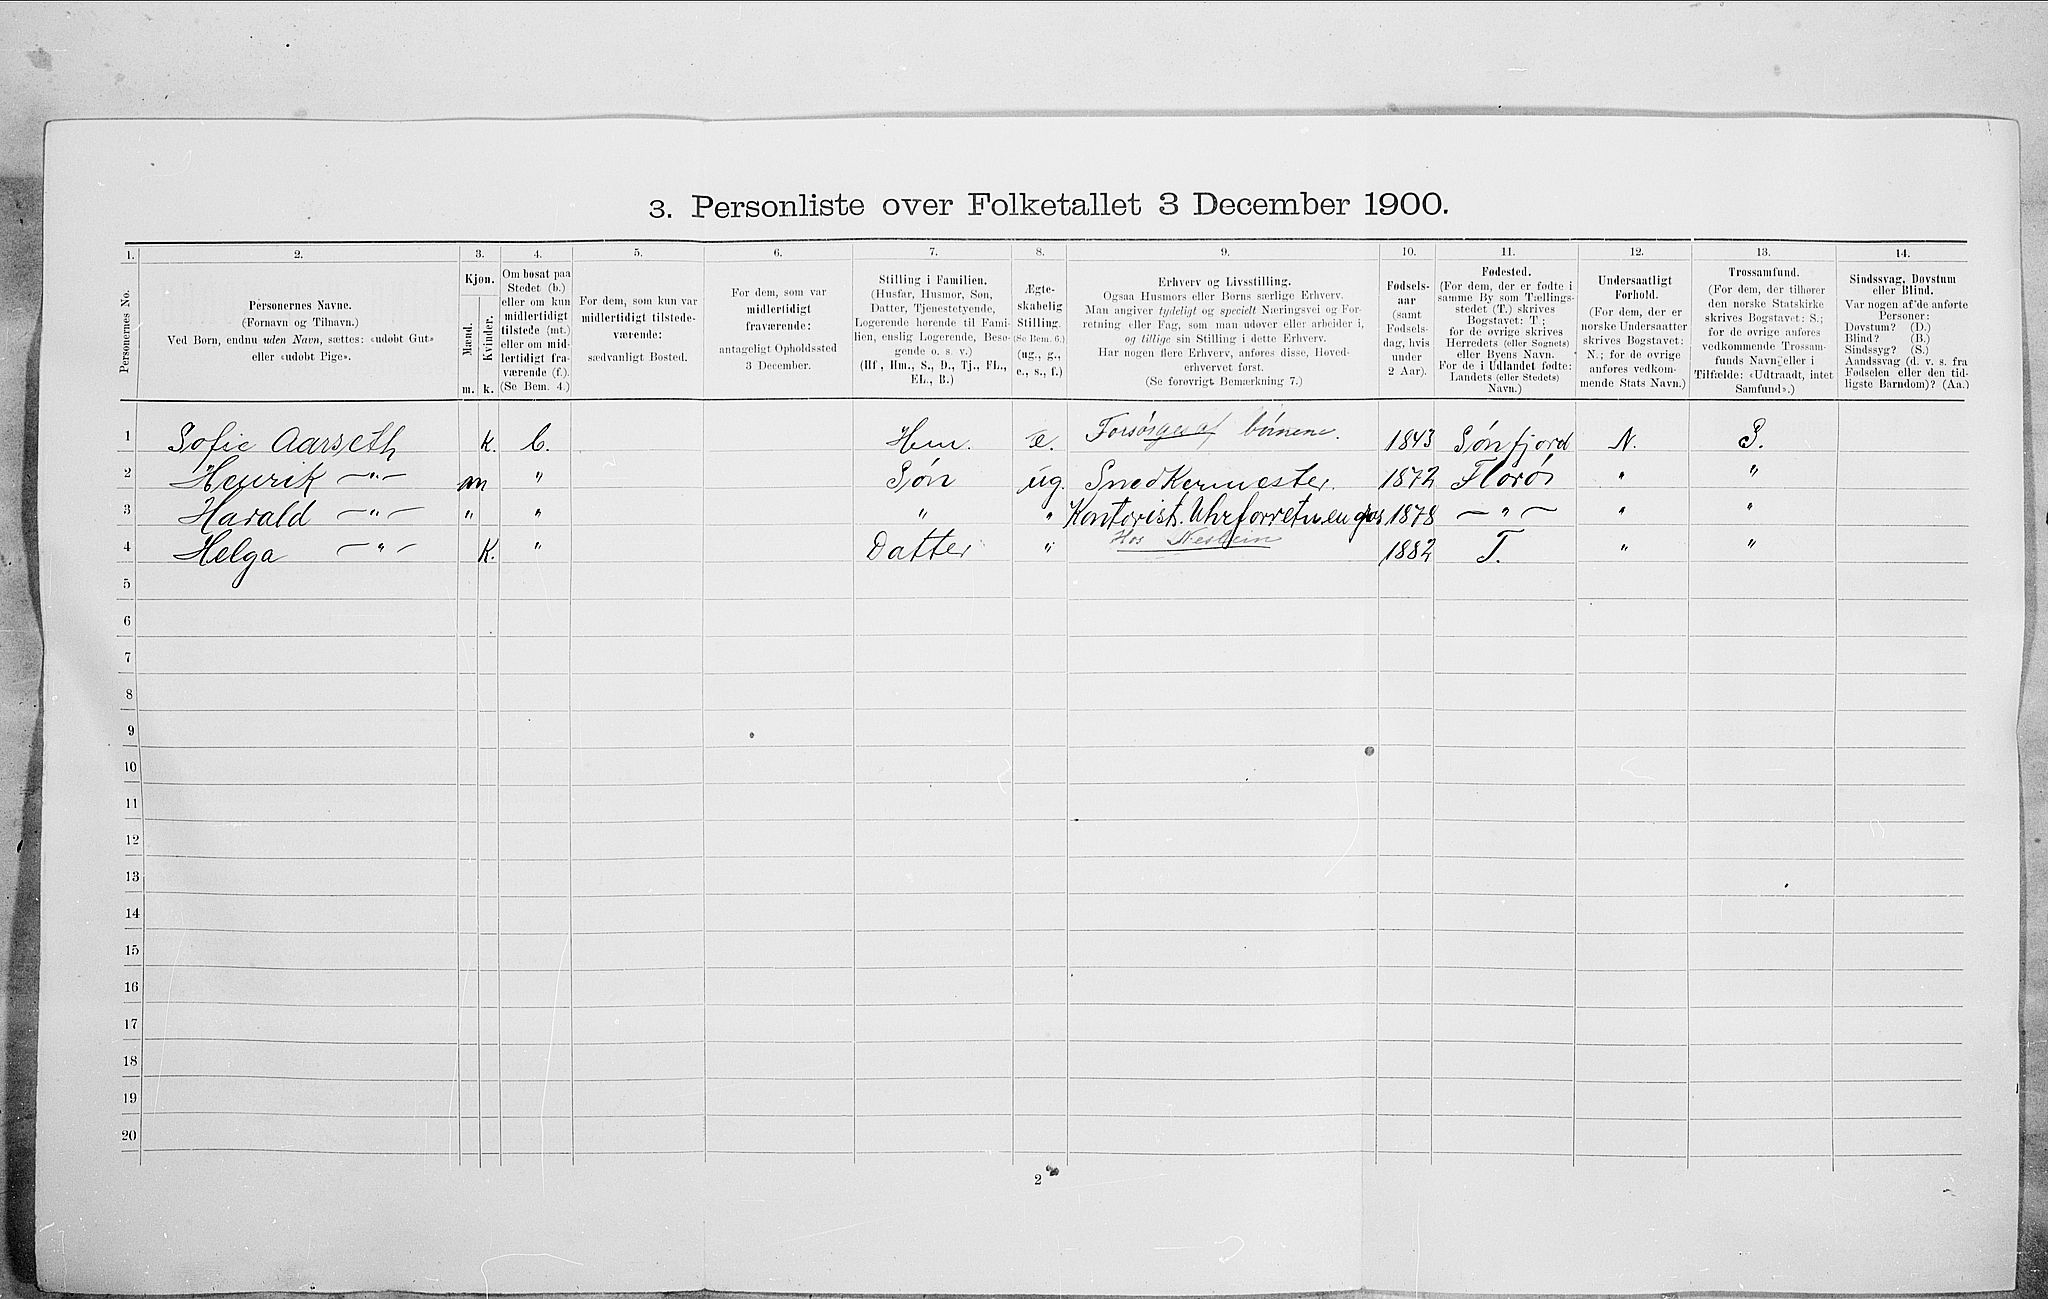 3. Personliste over Folketallet 3 December 1900.
1. 2. 3. 4. 5. 6. 7. 8. 9. 10. 11. 12. 13. 14.
Personernes No.
Personernes Navne.
(Fornavn og Tilnavn.)
Ved Børn, endnu uden Navn, sættes: «udøbt Gut»
eller «udøbt Pige».
Kjøn.
Mænd.
Kvinder.
m. k.
Om bosat paa
Stedet (b.)
eller om kun
midlertidigt
tilstede (mt.)
eller om mid-
lertidigt fra-
værende (f.).
(Se Bem. 4.)
For dem, som kun var
midlertidigt tilstede-
værende:
sædvanligt Bosted.
For dem, som var
midlertidigt
fraværende:
antageligt Opholdssted
3 December.
Stilling i Familien.
(Husfar, Husmor, Søn,
Datter, Tjenestetyende,
Logerende hørende til Fami-
lien, enslig Logerende, Besø-
gende o. s. v.)
(Hf., Hm., S., D., Tj., FL.,
EL., B.)
Ægte-
skabelig
Stilling.
(Se Bem. 6.)
(ug., g.,
e., s., f.)
Erhverv og Livsstilling.
Ogsaa Husmors eller Børns særlige Erhverv.
Man angiver tydeligt og specielt Næringsvei og For-
retning eller Fag, som man udøver eller arbeider i,
og tillige sin Stilling i dette Erhverv.
Har nogen flere Erhverv, anføres disse, Hoved-
erhvervet først.
(Se forøvrigt Bemærkning 7.)
Fødsels-
aar
(samt
Fødsels-
dag, hvis
under
2 Aar).
Fødested.
(For dem, der er fødte i
samme By som Tællings-
stedet (T.) skrives
Bogstavet: T;
for de øvrige skrives
Herredets (eller Sognets)
eller Byens Navn.
For de i Udlandet fødte:
Landets (eller Stedets)
Navn.)
Undersaatligt
Forhold.
(For dem, der er
norske Undersaatter
skrives Bogstavet:
N.; for de øvrige
anføres vedkom-
mende Stats Navn.)
Trossamfund.
(For dem, der tilhører
den norske Statskirke
skrives Bogstavet: S.;
for de øvrige anføres
vedkommende Trossam-
funds Navn, eller i
Tilfælde: «Udtraadt, intet
Samfund».)
Sindssvag, Døvstum
eller Blind.
Var nogen af de anførte
Personer:
Døvstum? (D.)
Blind? (B.)
Sindssyg? (S.)
Aandssvag (d. v. s. fra
Fødselen eller den tid-
ligste Barndom)? (Aa.)
1 Sofie Aarseth k. b. Hm. e. Forsørges af børnene. 1843 Sønfjord N. S.
2 Henrik —"— m " Søn ug. Snedkermester. 1872 Florø " "
3 Harald —"— " " " " Kontorist. Uhrforretningos 1878 —"— " "
4 Helga —"— k. " Datter " Hos 1882 T. " "
5
6
7
8
9
10
11
12
13
14
15
16
17
18
19
20
2